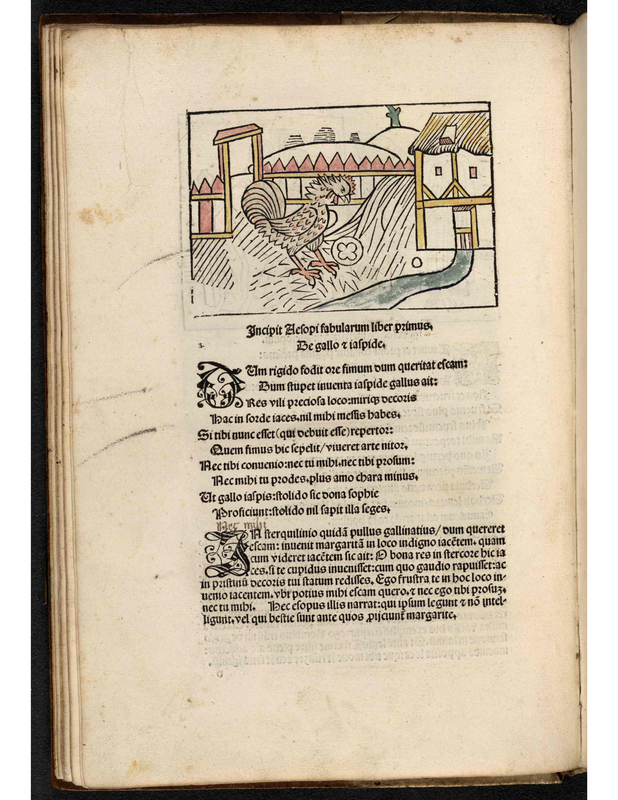 Incipit Aesopi fabularum liber primus.
De gallo ⁊ iaspide.
DUm rigido fodit ore fimum dum queritat escam:
Dum stupet inventa iaspide gallus ait:
Res vili preciosa loco: miriqꝫ decoris
Hac in sorde iaces, nil mihi messis habes.
Si tibi nunc esset (qui debuit esse) repertor:
Quem fimus hic sepelit/ viveret arte nitor.
Nec tibi convenio: nec tu mihi. nec tibi prosum:
Nec mihi tu prodes. plus amo chara minus.
Ut gallo iaspis: stolido sic dona sophie
Proficiunt: stolido nil sapit illa seges.
Nec mihi
IN sterquilinio quidā pullus gallinatius/ dum quereret
escam: invenit margaritā in loco indigno iacētem. quam
cum videret iacētem sic ait: O bona res in stercore hic ia
ces. si te cupidus invenisset: cum quo gaudio rapuisset: ac
in pristinū decoris tui statum redisses. Ego frustra te in hoc loco in-
venio iacentem. vbi potius mihi escam quero. ⁊ nec ego tibi prosuꝫ.
nec tu mihi. Hec esopus illis narrat: qui ipsum legunt ⁊ nō intel-
ligunt. vel qui bestie sunt ante quos ꝓijciunt̃ margarite.